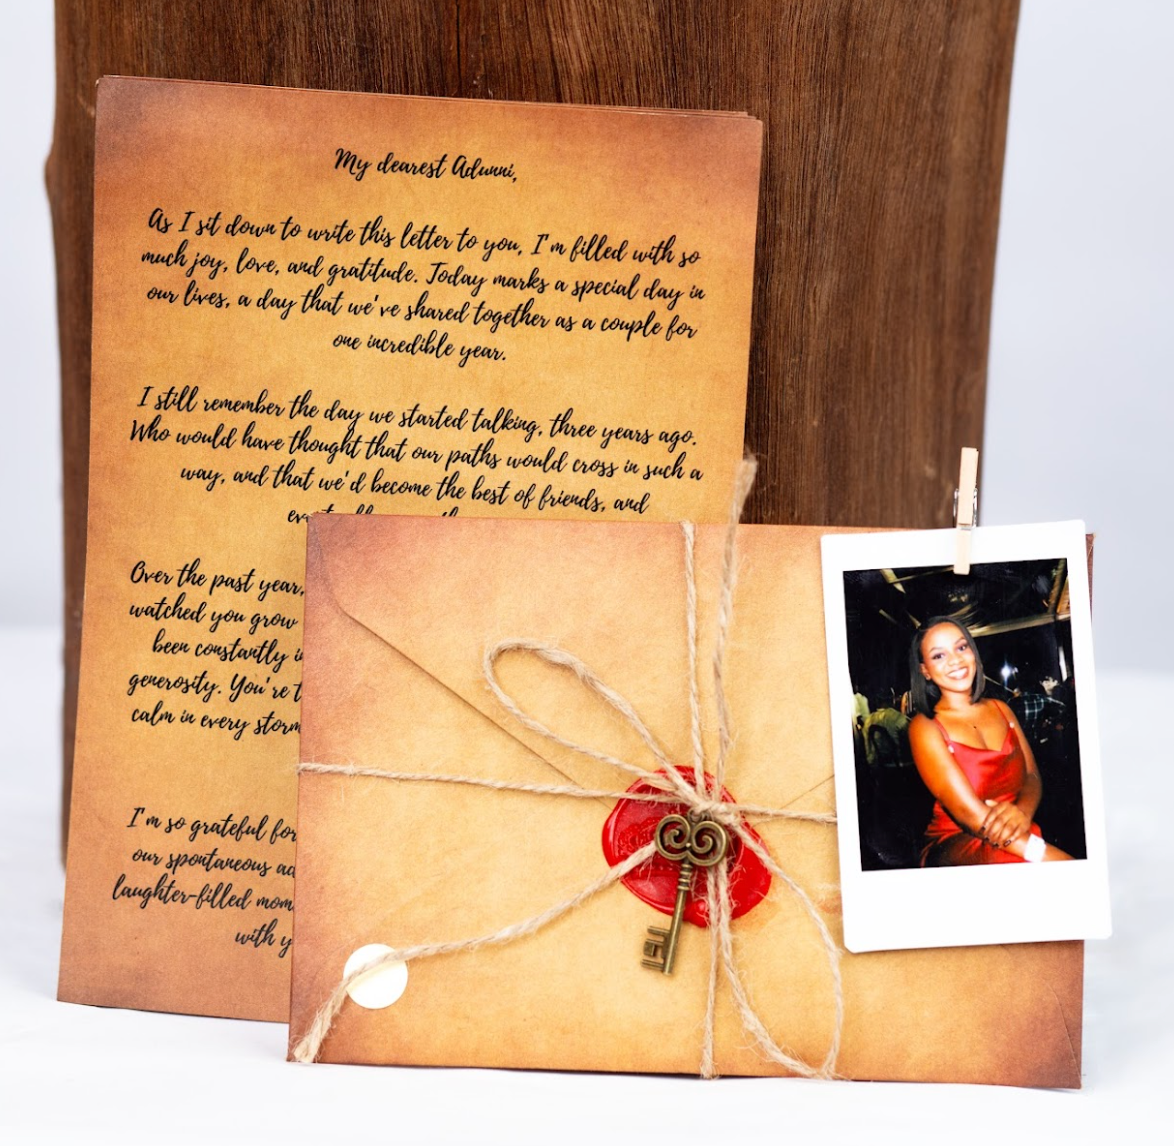 My dearest Adunni,
As I sit down to write this letter to you, I'm filled with so
much joy, love, and gratitude. Today marks a special day in
our lives, a day that we've shared together as a couple for
one incredible year.
I still remember the day we started talking, three years ago.
Who would have thought that our paths would cross in such a
way, and that we'd become the best of friends, and
Over the past year,
watched you grow
been constantly
generosity. You're
calm in every storm
I'm so grateful for
our spontaneous
laughter-filled
with